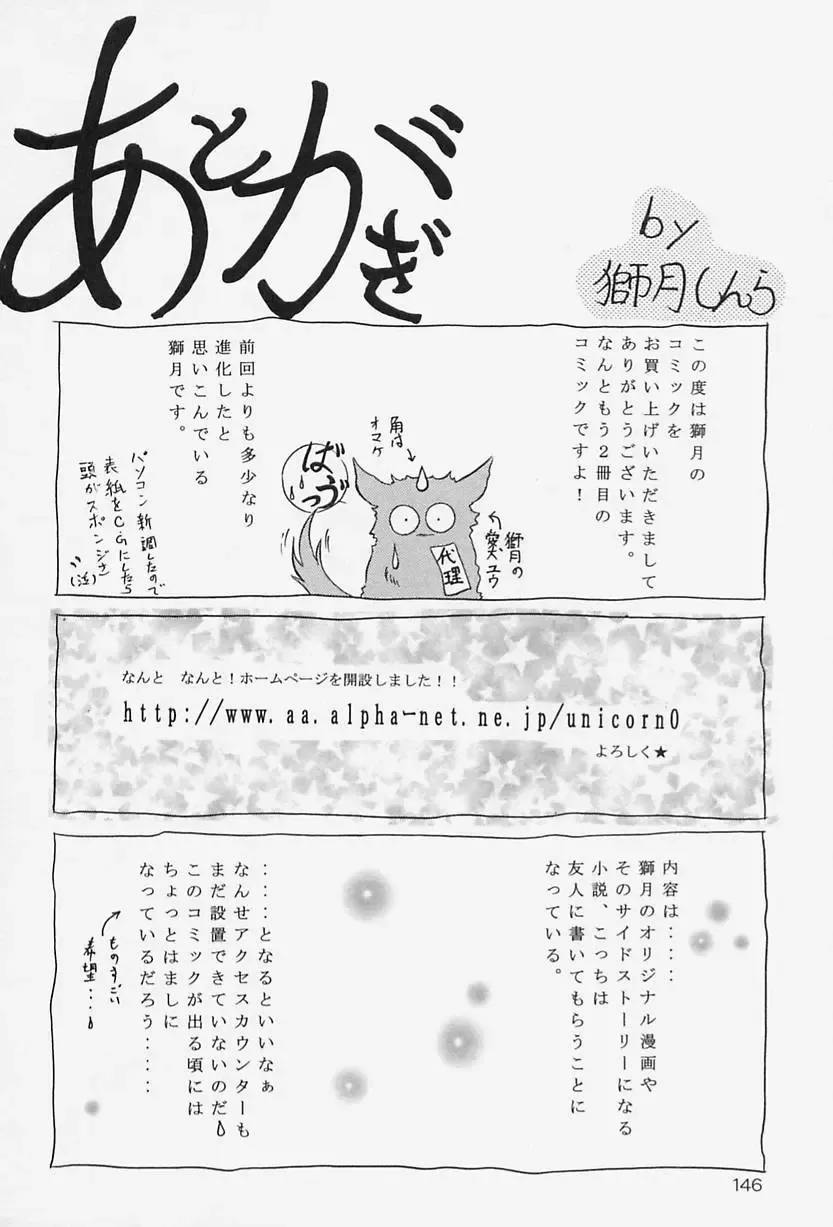 あとがき
by
獅月しんら
この度は獅月の
コミックを
お買い上げいただきまして
ありがとうございます。
なんともう2冊目の
コミックですよ！
角は
オマケ
ばうっ
代理
獅月の
愛犬ユウ
前回よりも多少なり
進化したと
思いこんでいる
獅月です。
パソコン新調したので
表紙をCGにしたら
頭がスポンジさ
(泣)
なんと なんと！ホームページを開設しました！！
http://www.aa.alpha-net.ne.jp/unicorn0
よろしく★
内容は‥‥
獅月のオリジナル漫画や
そのサイドストーリーになる
小説、こっちは
友人に書いてもらうことに
なっている。
‥‥となるといいなぁ
なんせアクセスカウンターも
まだ設置できていないのだ
このコミックが出る頃には
ちょっとはましに
なっているだろう‥‥
ものすごい
希望…
146